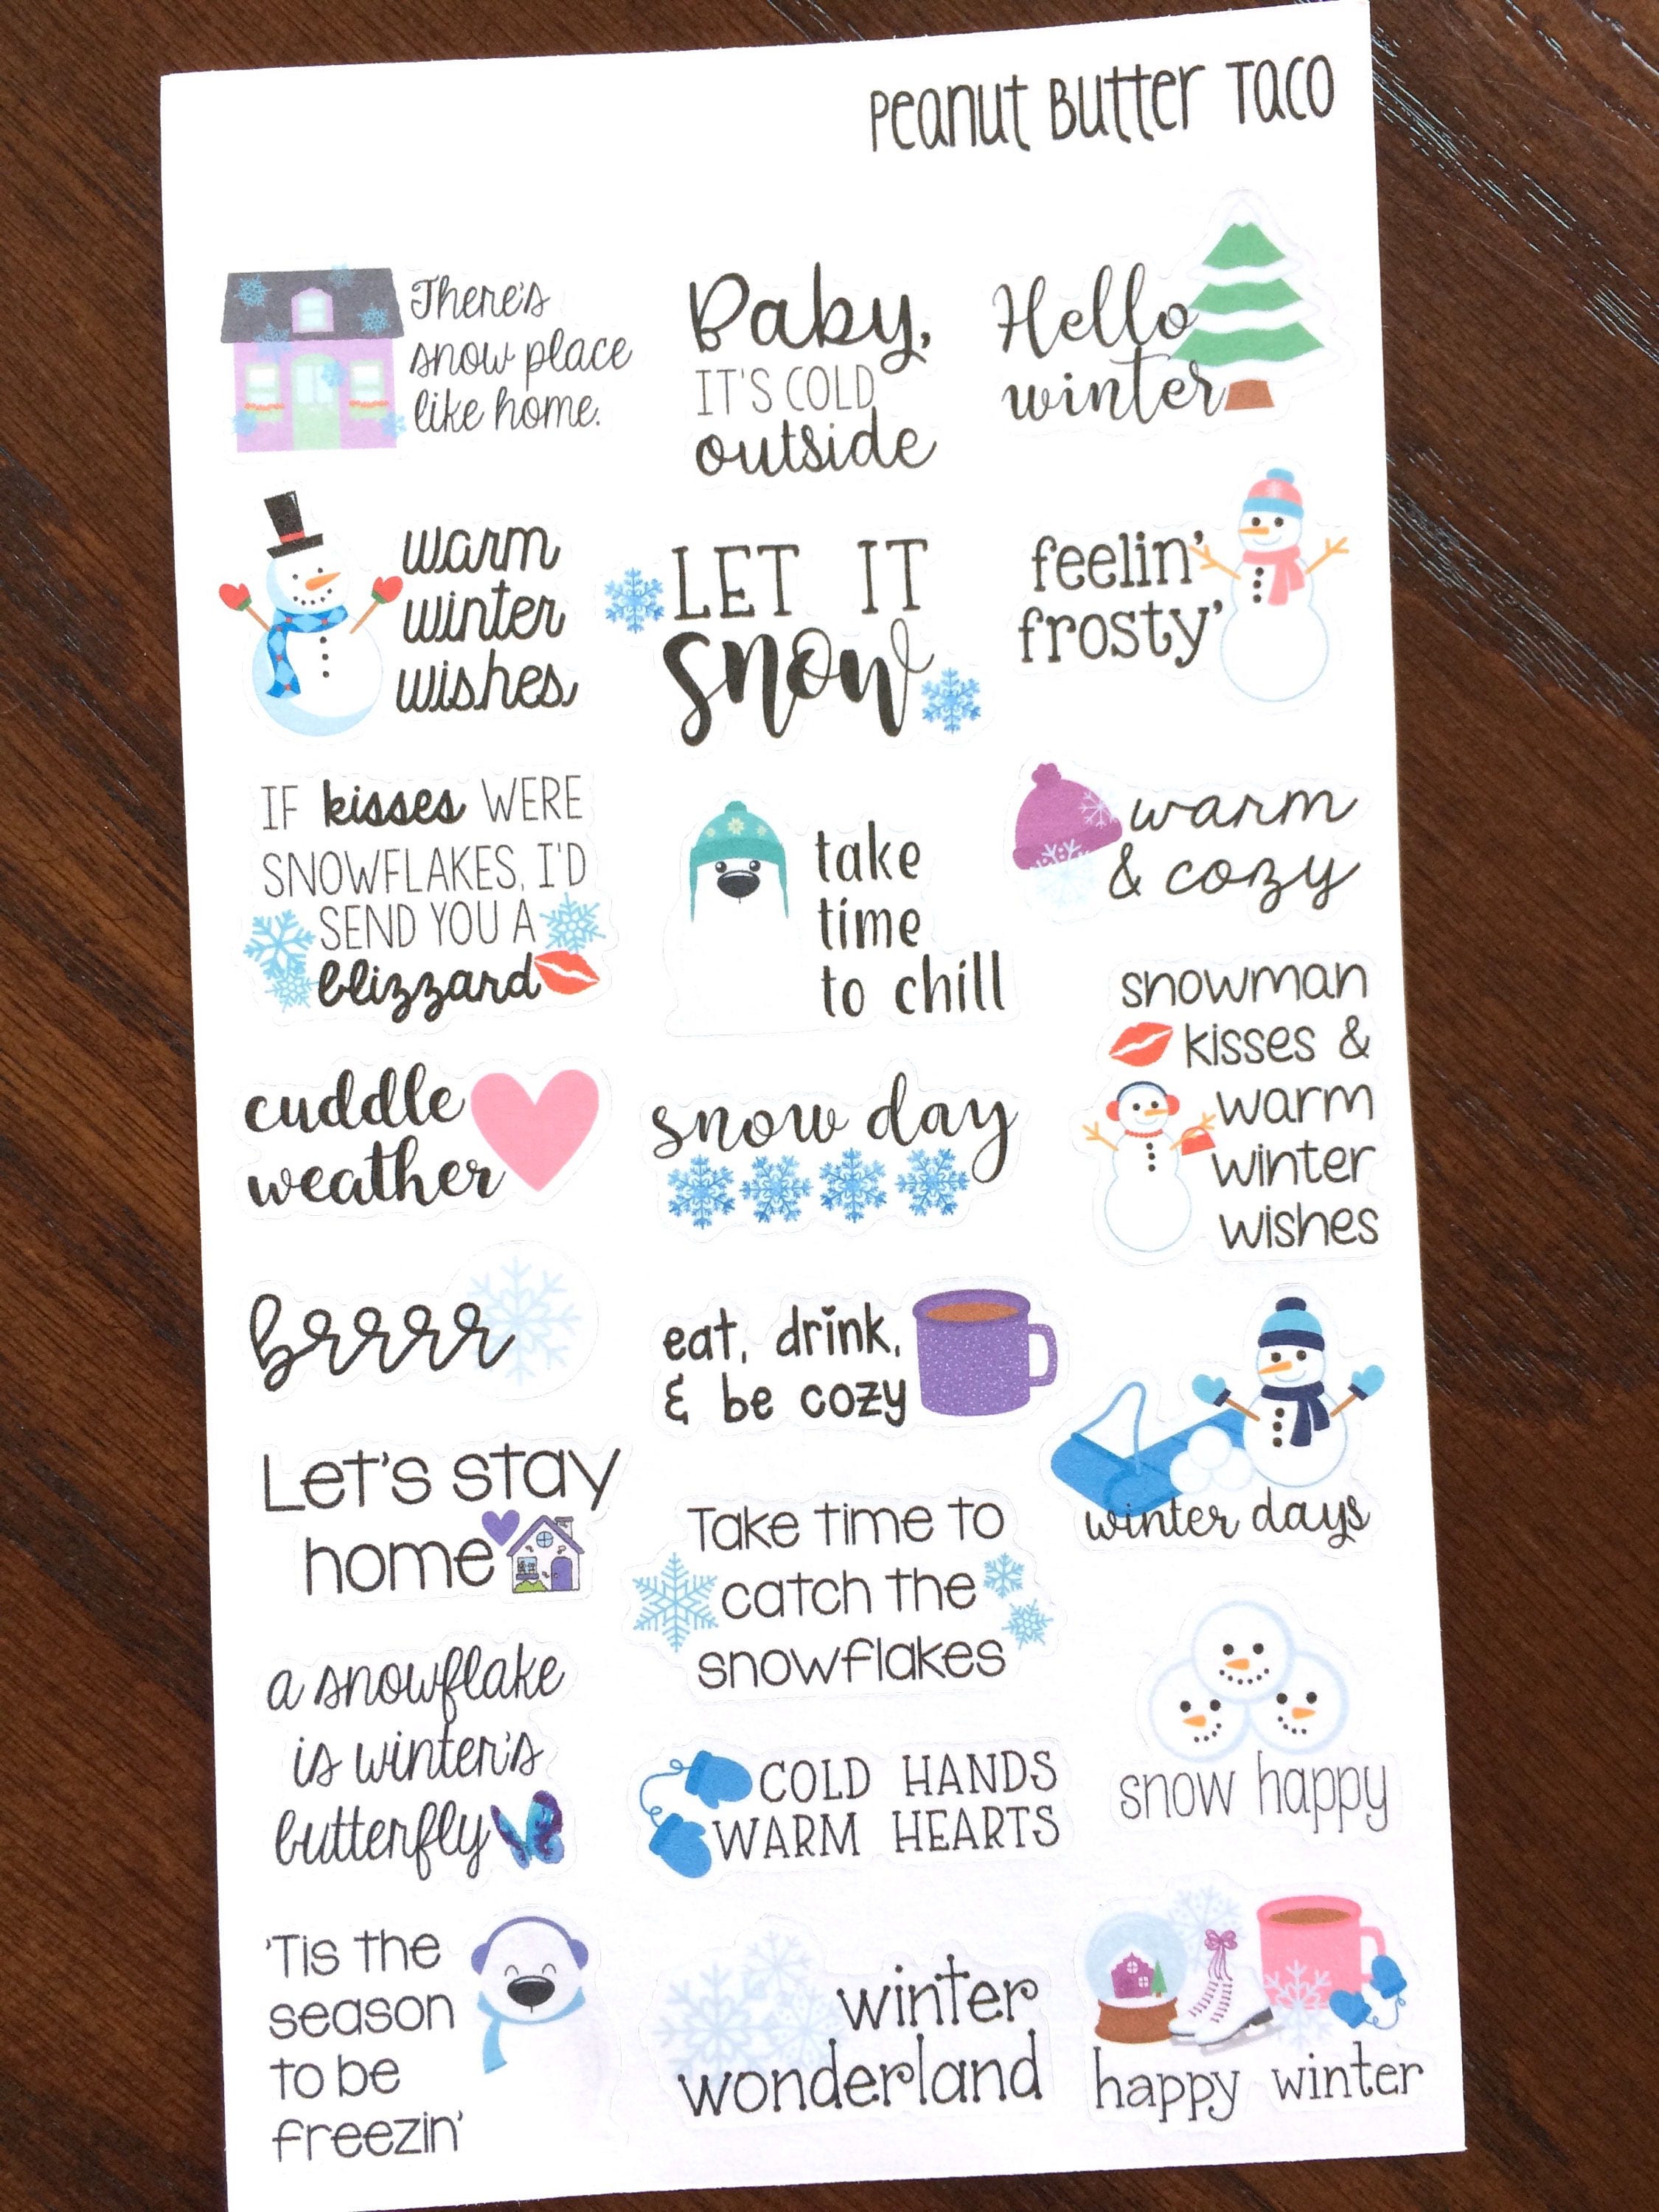 Peanut Butter Taco
There's
snow place
like home.
Baby,
IT'S COLD
outside
Hello
winter
warm
winter
wishes
LET IT
snow
feelin'
frosty'
IF kisses WERE
SNOWFLAKES, I'D
SEND YOU A
blizzard
take
time
to chill
warm
& cozy
snowman
kisses &
warm
winter
wishes
cuddle
weather
snow day
brrrr
eat, drink,
& be cozy
winter days
Let's stay
home
Take time to
catch the
snowflakes
snow happy
a snowflake
is winter's
butterfly
COLD HANDS
WARM HEARTS
'Tis the
season
to be
freezin'
winter
wonderland
happy winter